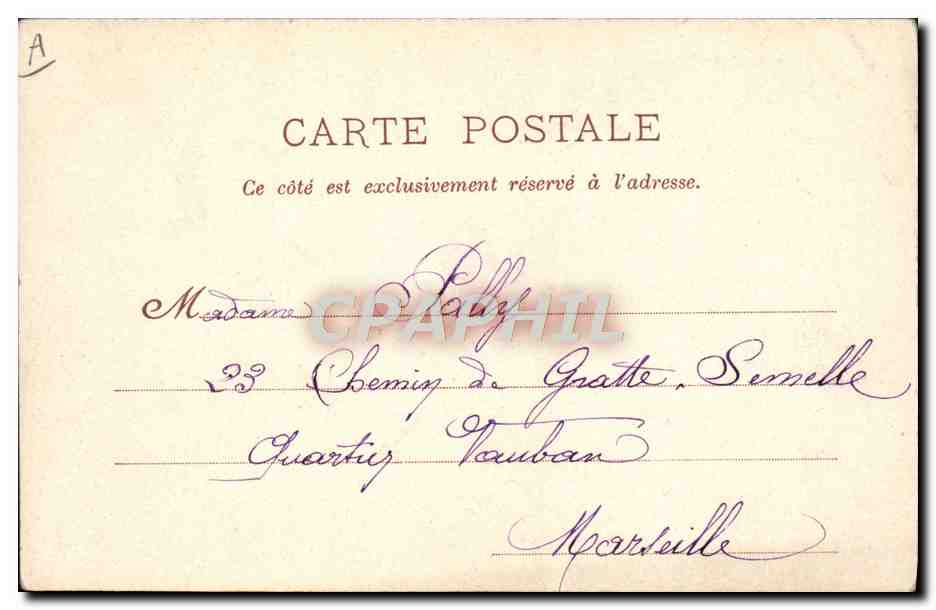 A
CARTE POSTALE
Ce côté est exclusivement réservé à l'adresse.
Madame Pally
CPAPHIL
23 Chemin de Gratte. Semelle
Quartier Vauban
Marseille